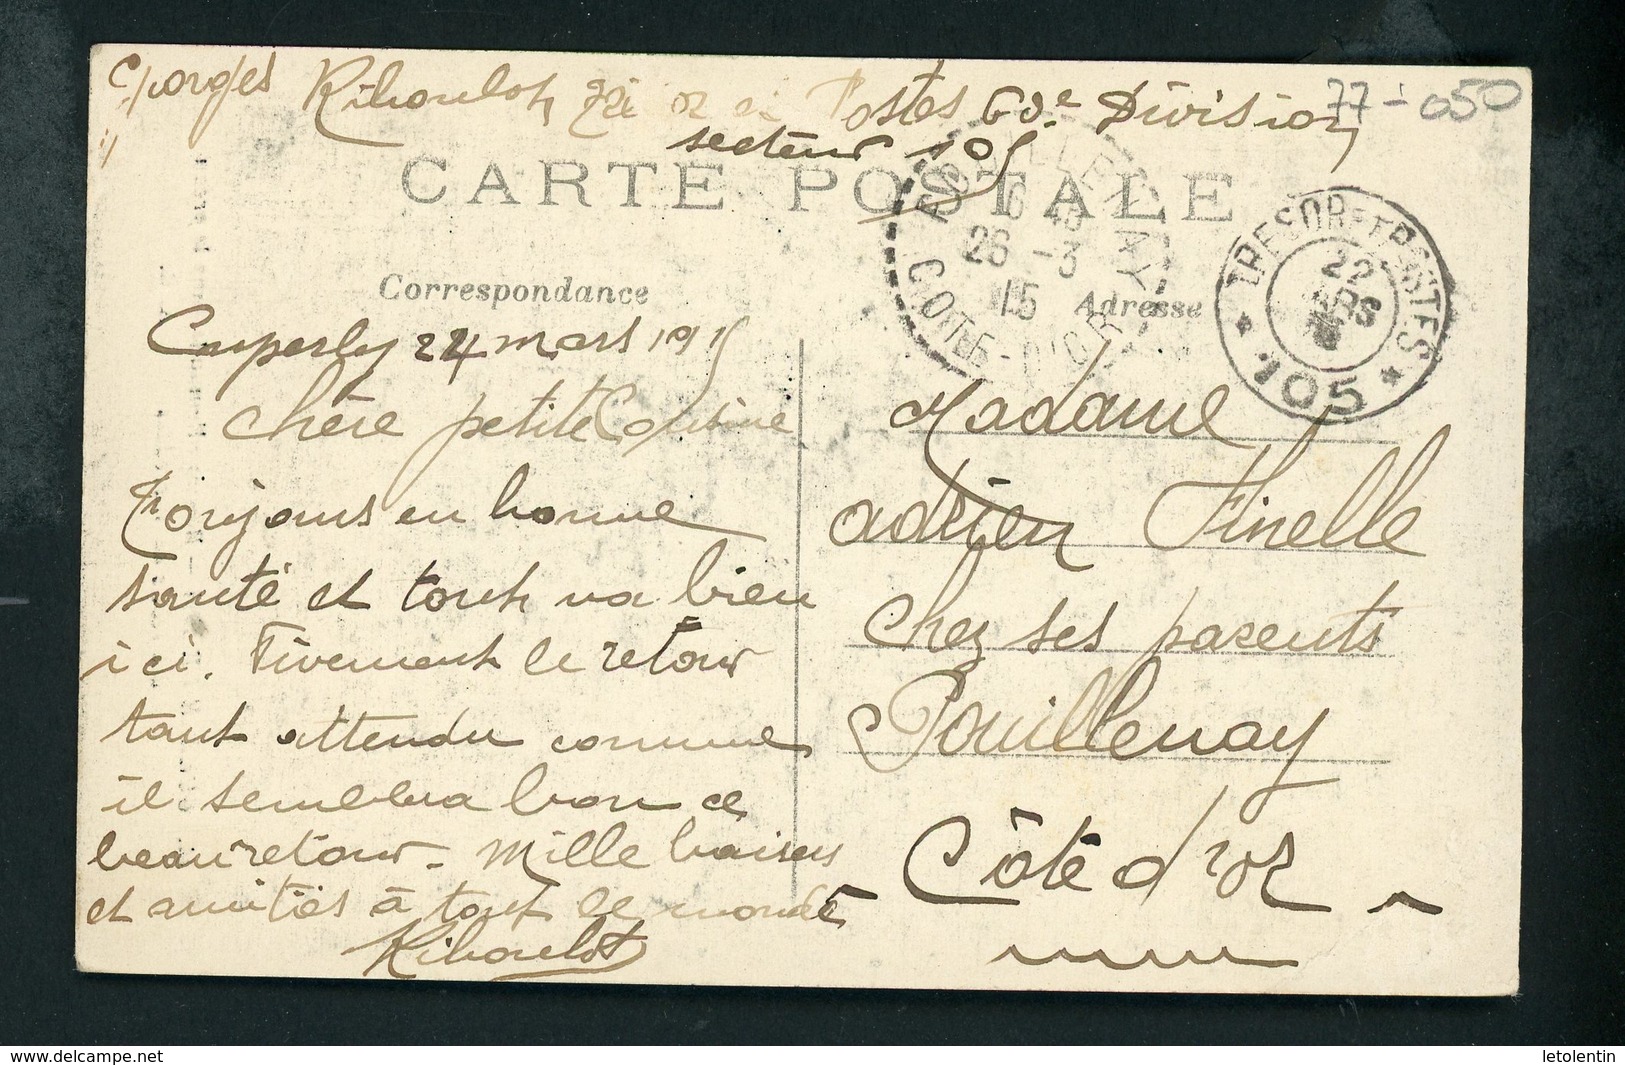 Georges Riboulot, Postes 60e Division
77-050
secteur 105
CARTE POSTALE
POUILLENAY
16 45
26 -3
15
COTE-D'OR
TRESOR ET POSTES
22
MARS
* 105 *
Correspondance
Adresse
Cuperly 24 mars 1915
Chère petite Cousine
Toujours en bonne
santé et tout va bien
ici. Vivement le retour
tant attendu comme
il semblera bon ce
beau retour. Mille baisers
et amitiés à tout le monde
Riboulot
Madame
Adrien Finelle
Chez ses parents
Pouillenay
Côte d'Or
delcampe.net
letolentin